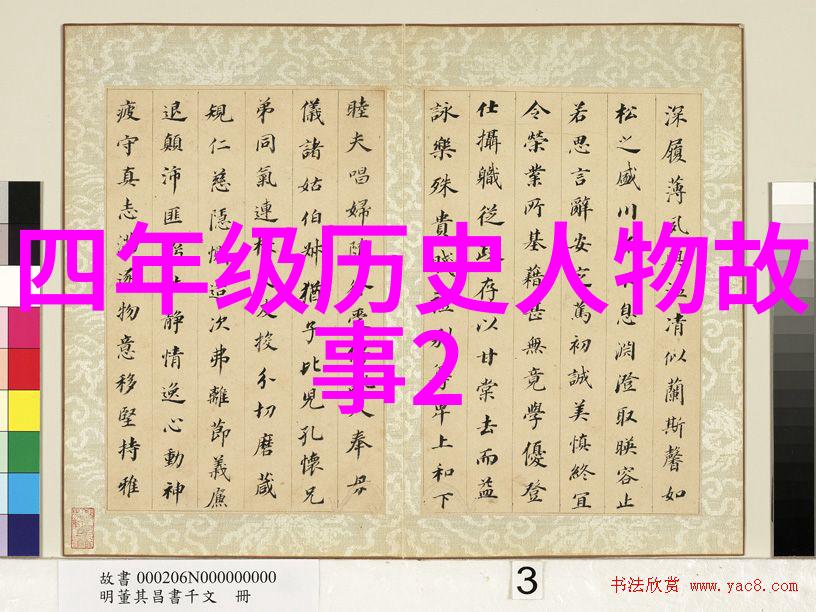 四年级历史人物故
事2
深履薄夙興温凊似蘭斯馨如
松之盛川流不息淵澄取暎容止
若思言辭安定篤初誠美慎終宜
令榮業所基藉甚無竟學優登
仕攝職從政存以甘棠去而益
詠樂殊貴賤禮別尊卑上和下
睦夫唱婦隨
奉母
儀諸姑伯叔猶子比兒孔懷兄
弟同氣連枝交友投分切磨箴
規仁慈隱惻造次弗離節義廉
退顛沛匪虧性静情逸心動神
疲守真志滿逐物意移堅持雅
故書 000206N000000000
明董其昌書千文 冊
3
书法欣赏 www.yac8.com